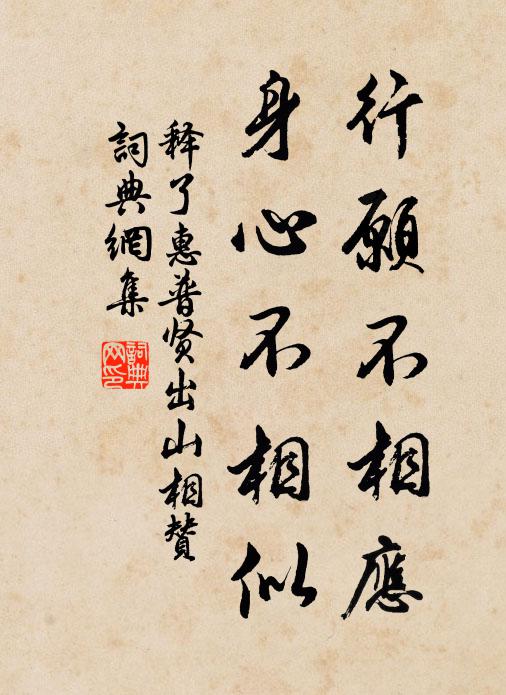 行願不相應
身心不相似
释了惠普贤出山相赞
詞典網集
詞典網印